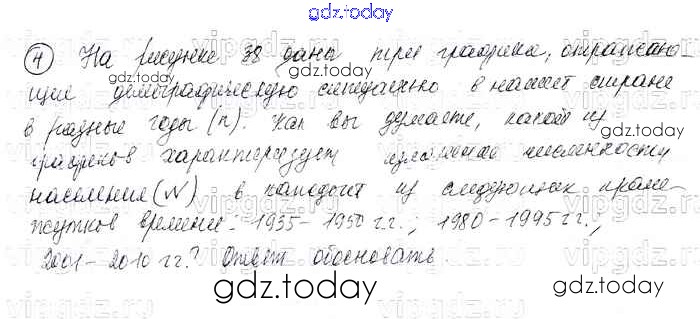 gdz.today
④ На рисунке 38 даны три графика, отражаю-
щие демографическую ситуацию в нашей стране
в разные годы (n). Как вы думаете, какой из
графиков характеризует изменение численности
населения (N) в каждый из следующих проме-
жутков времени: 1935-1950 г.г.; 1980-1995 г.г.;
2001-2010 г.г.? Ответ обосновать.
gdz.today
gdz.today
gdz.today
gdz.today
gdz.today
gdz.today
vipgdz.today
vipgdz.today